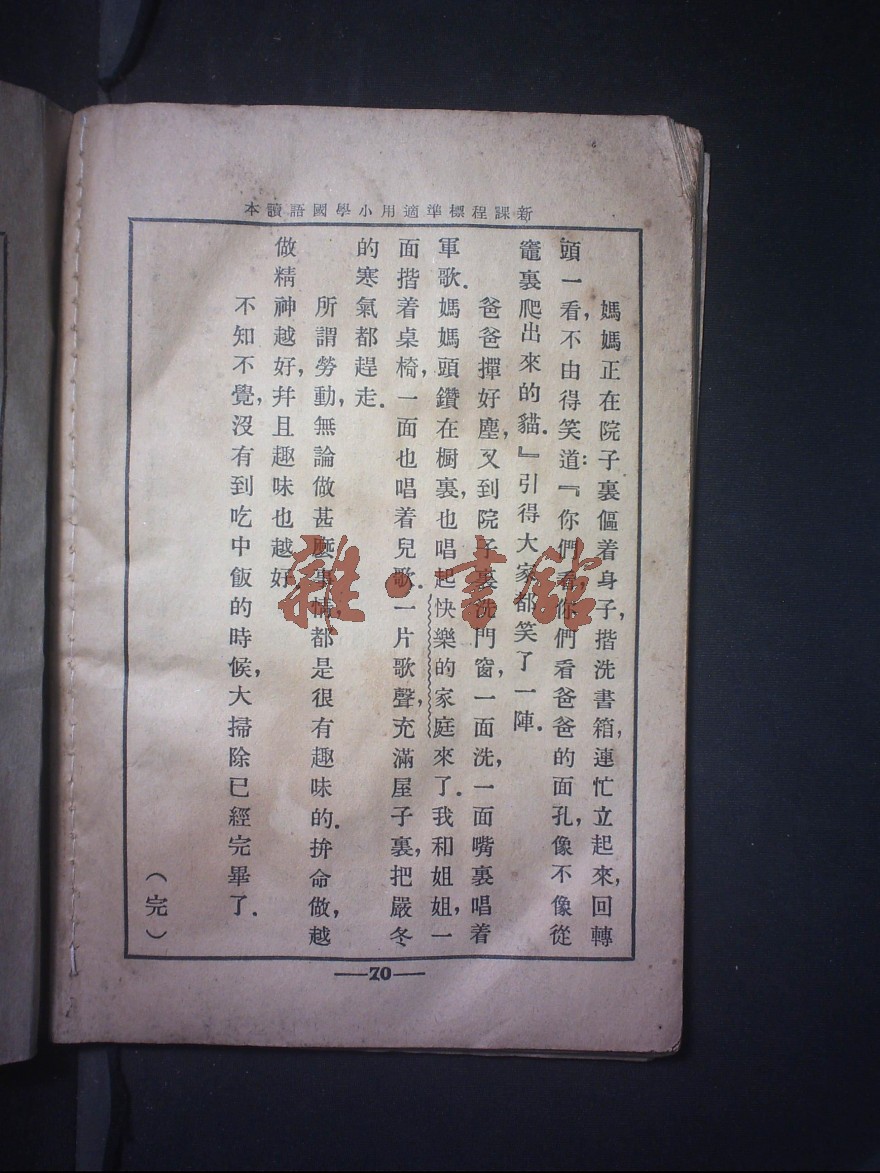 新課程標準適用小學國語讀本
媽媽正在院子裏傴着身子,揩洗書箱,連忙立起來,回轉
頭一看,不由得笑道:『你們看,你們看爸爸的面孔,像不像從
竈裏爬出來的貓.』引得大家都笑了一陣.
爸爸撣好塵,又到院子裏洗門窗,一面洗,一面嘴裏唱着
軍歌.媽媽頭鑽在櫥裏,也唱起快樂的家庭來了.我和姐姐,一
面揩着桌椅,一面也唱着兒歌.一片歌聲,充滿屋子裏,把嚴冬
的寒氣都趕走.
所謂勞動,無論做甚麼事情,都是很有趣味的.拚命做,越
做精神越好,幷且趣味也越好.
不知不覺,沒有到吃中飯的時候,大掃除已經完畢了.
(完)
70
雜·書館